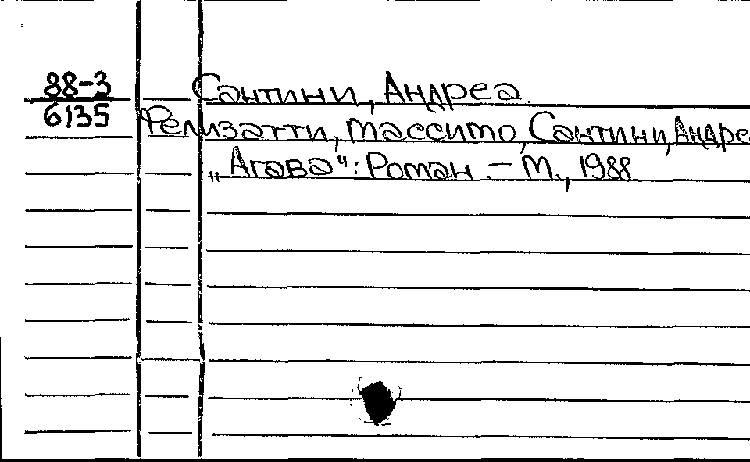 88-3 Сантини, Андреа
6135 Фелизатти, Массимо, Сантини, Андре
„Агава“: Роман – М., 1988